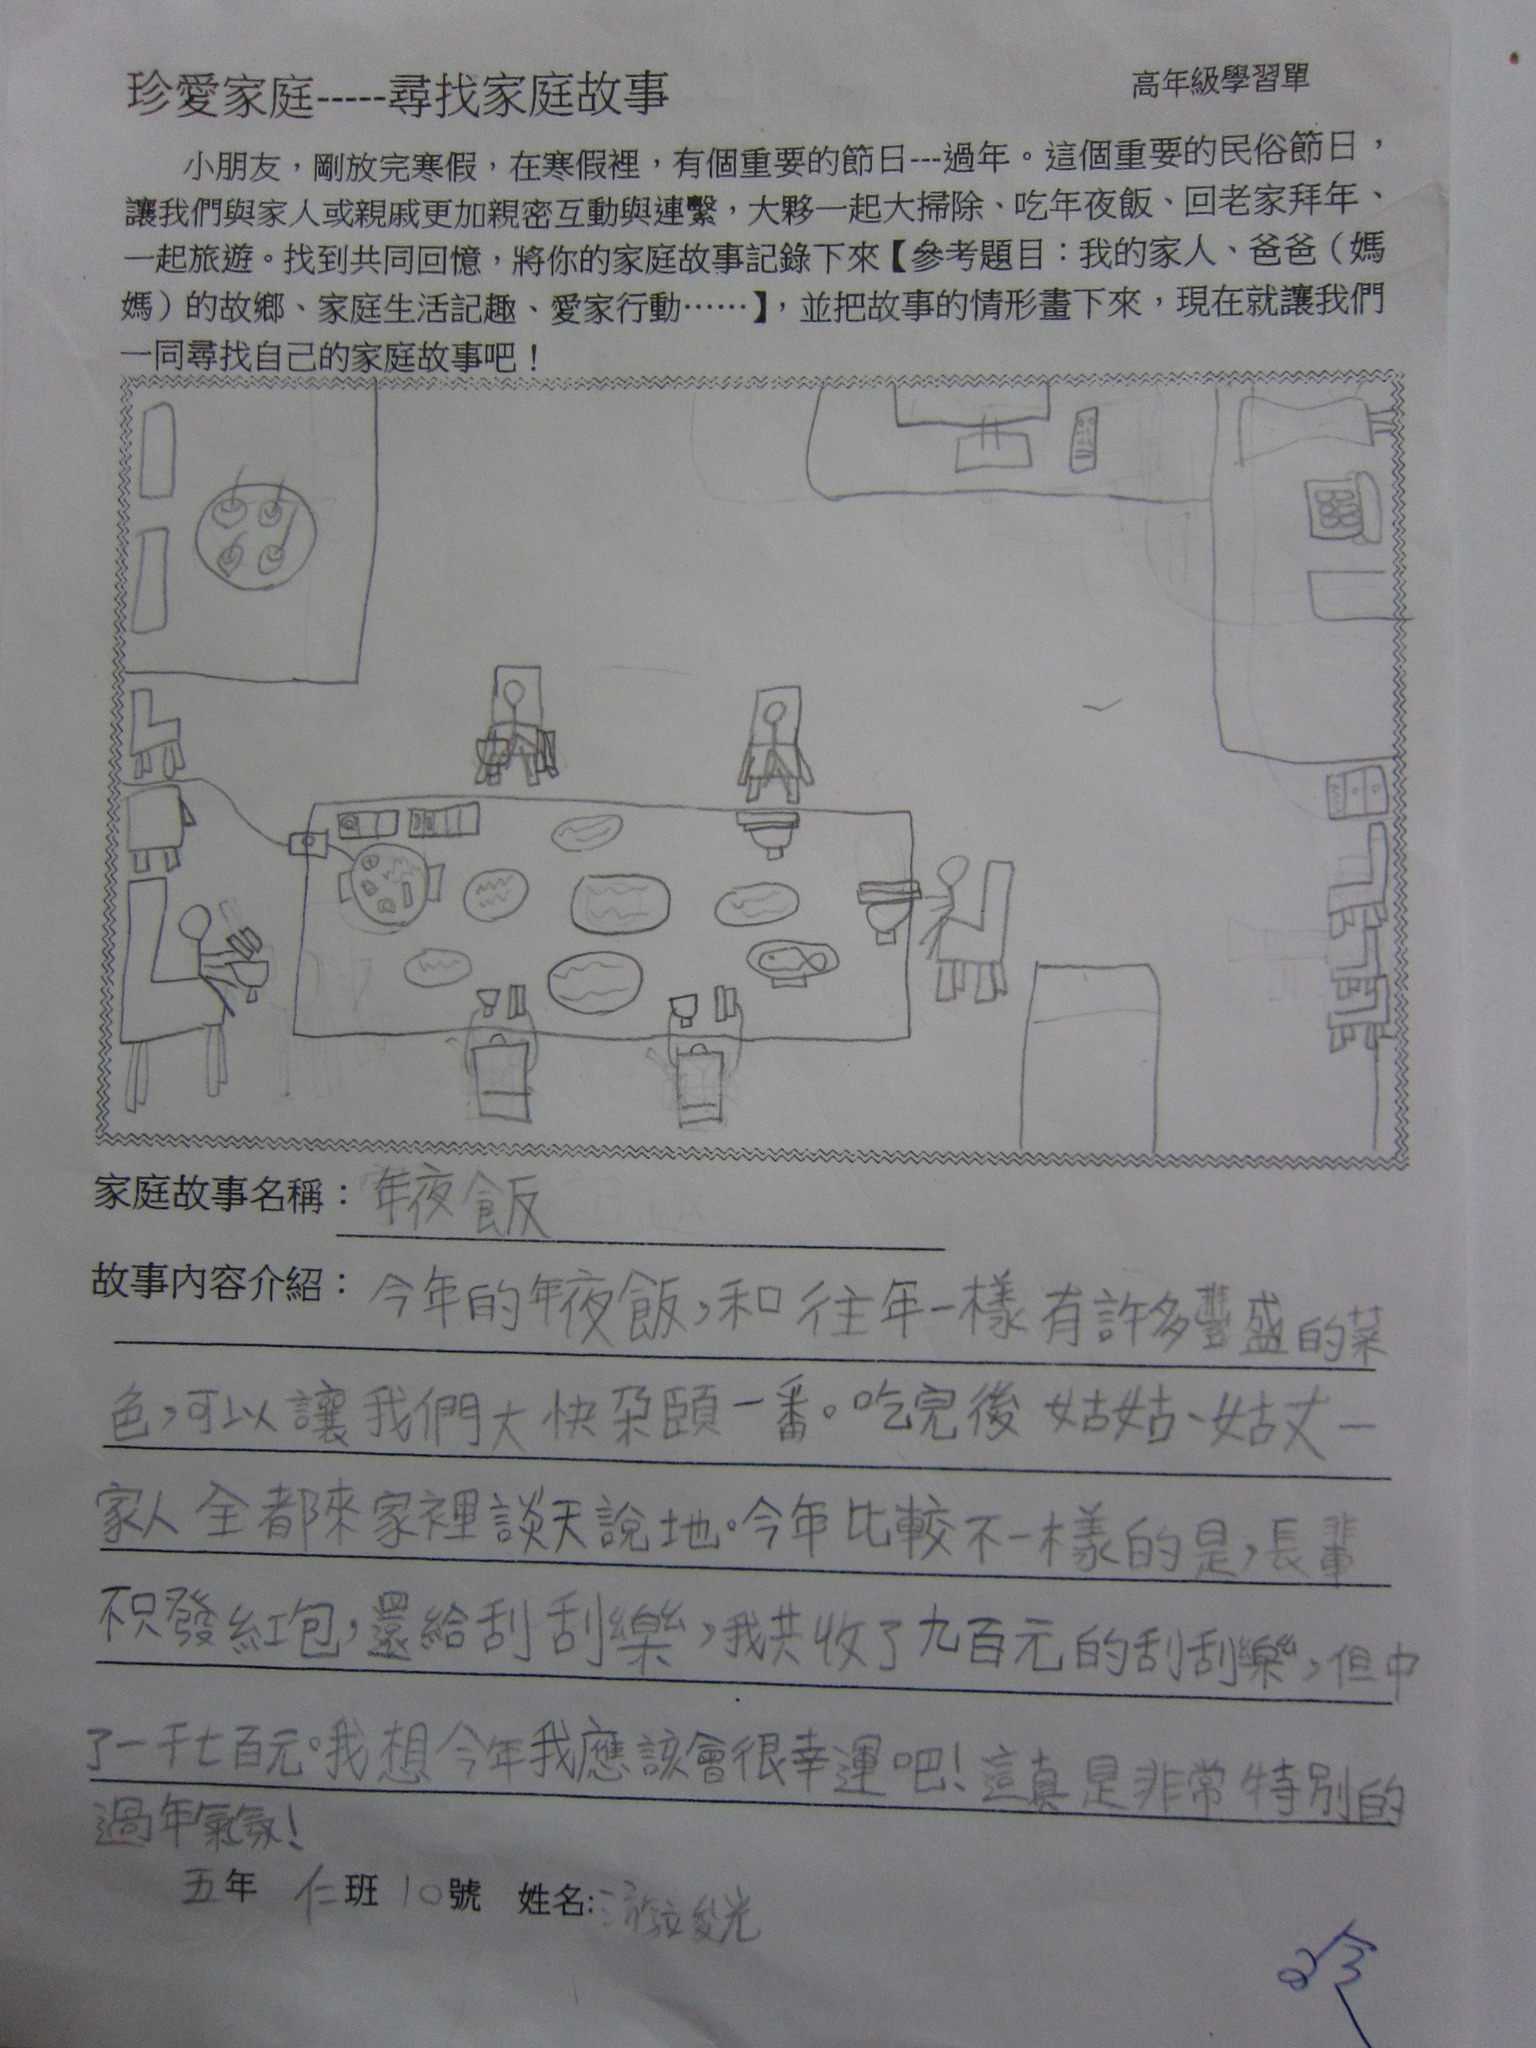 珍愛家庭-----尋找家庭故事
高年級學習單
小朋友，剛放完寒假，在寒假裡，有個重要的節日---過年。這個重要的民俗節日，
讓我們與家人或親戚更加親密互動與連繫，大夥一起大掃除、吃年夜飯、回老家拜年、
一起旅遊。找到共同回憶，將你的家庭故事記錄下來【參考題目：我的家人、爸爸（媽
媽）的故鄉、家庭生活記趣、愛家行動……】，並把故事的情形畫下來，現在就讓我們
一同尋找自己的家庭故事吧！
家庭故事名稱：年夜飯
故事內容介紹：今年的年夜飯，和往年一樣有許多豐盛的菜
色，可以讓我們大快朵頤一番。吃完後姑姑、姑丈一
家人全都來家裡談天說地。今年比較不一樣的是，長輩
不只發紅包，還給刮刮樂，我共收了九百元的刮刮樂，但中
了一千七百元。我想今年我應該會很幸運吧！這真是非常特別的
過年氣氛！
五年 仁班 10號 姓名:游